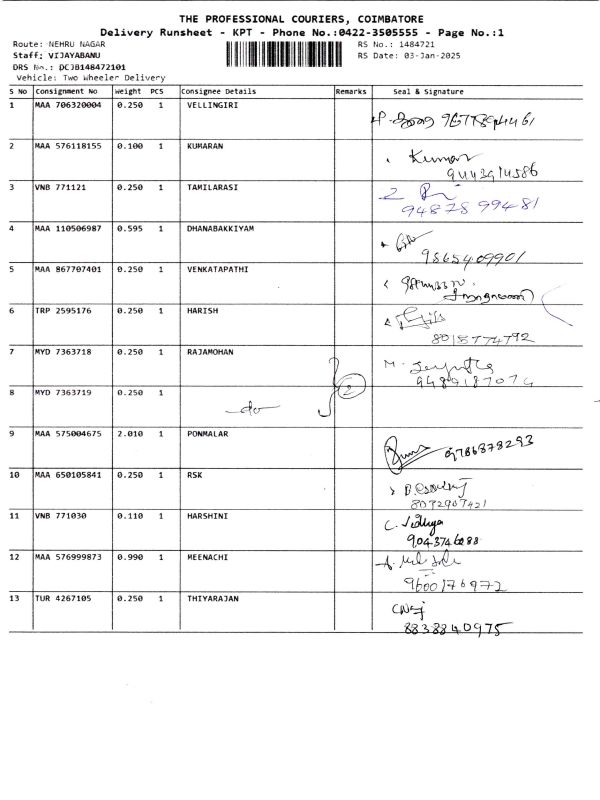 THE PROFESSIONAL COURIERS, COIMBATORE
Delivery Runsheet - KPT - Phone No.:0422-3505555 - Page No.:1
Route: NEHRU NAGAR RS No.: 1484721
Staff: VIJAYABANU RS Date: 03-Jan-2025
DRS No.: DCJB148472101
Vehicle: Two Wheeler Delivery
S No Consignment No Weight PCS Consignee Details Remarks Seal & Signature
1 MAA 706320004 0.250 1 VELLINGIRI
2 MAA 576118155 0.100 1 KUMARAN Kumar
3 VNB 771121 0.250 1 TAMILARASI
94878 99481
4 MAA 110506987 0.595 1 DHANABAKKIYAM
9865409901
5 MAA 867707401 0.250 1 VENKATAPATHI
6 TRP 2595176 0.250 1 HARISH
8015774792
7 MYD 7363718 0.250 1 RAJAMOHAN
9489187074
8 MYD 7363719 0.250 1 do 2
9 MAA 575004675 2.010 1 PONMALAR 9786878293
10 MAA 650105841 0.250 1 RSK
8072907421
11 VNB 771030 0.110 1 HARSHINI C. Vidhya
9043746288
12 MAA 576999873 0.990 1 MEENACHI
9600176972
13 TUR 4267105 0.250 1 THIYARAJAN
8838840975